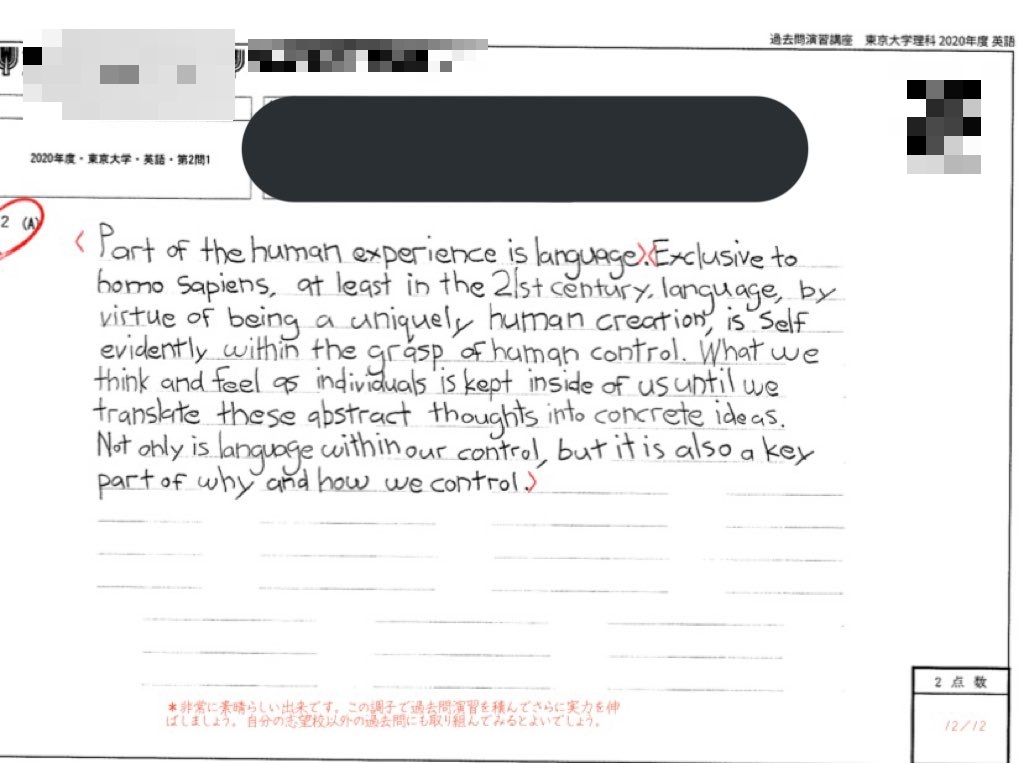 過去問演習講座 東京大学理科 2020年度 英語
2020年度・東京大学・英語・第2問1
2 (A)
Part of the human experience is language. Exclusive to
homo sapiens, at least in the 21st century, language, by
virtue of being a uniquely human creation, is self
evidently within the grasp of human control. What we
think and feel as individuals is kept inside of us until we
translate these abstract thoughts into concrete ideas.
Not only is language within our control, but it is also a key
part of why and how we control.
*非常に素晴らしい出来です。この調子で過去問演習を積んでさらに実力を伸
ばしましょう。自分の志望校以外の過去問にも取り組んでみるとよいでしょう。
2 点 数
12/12